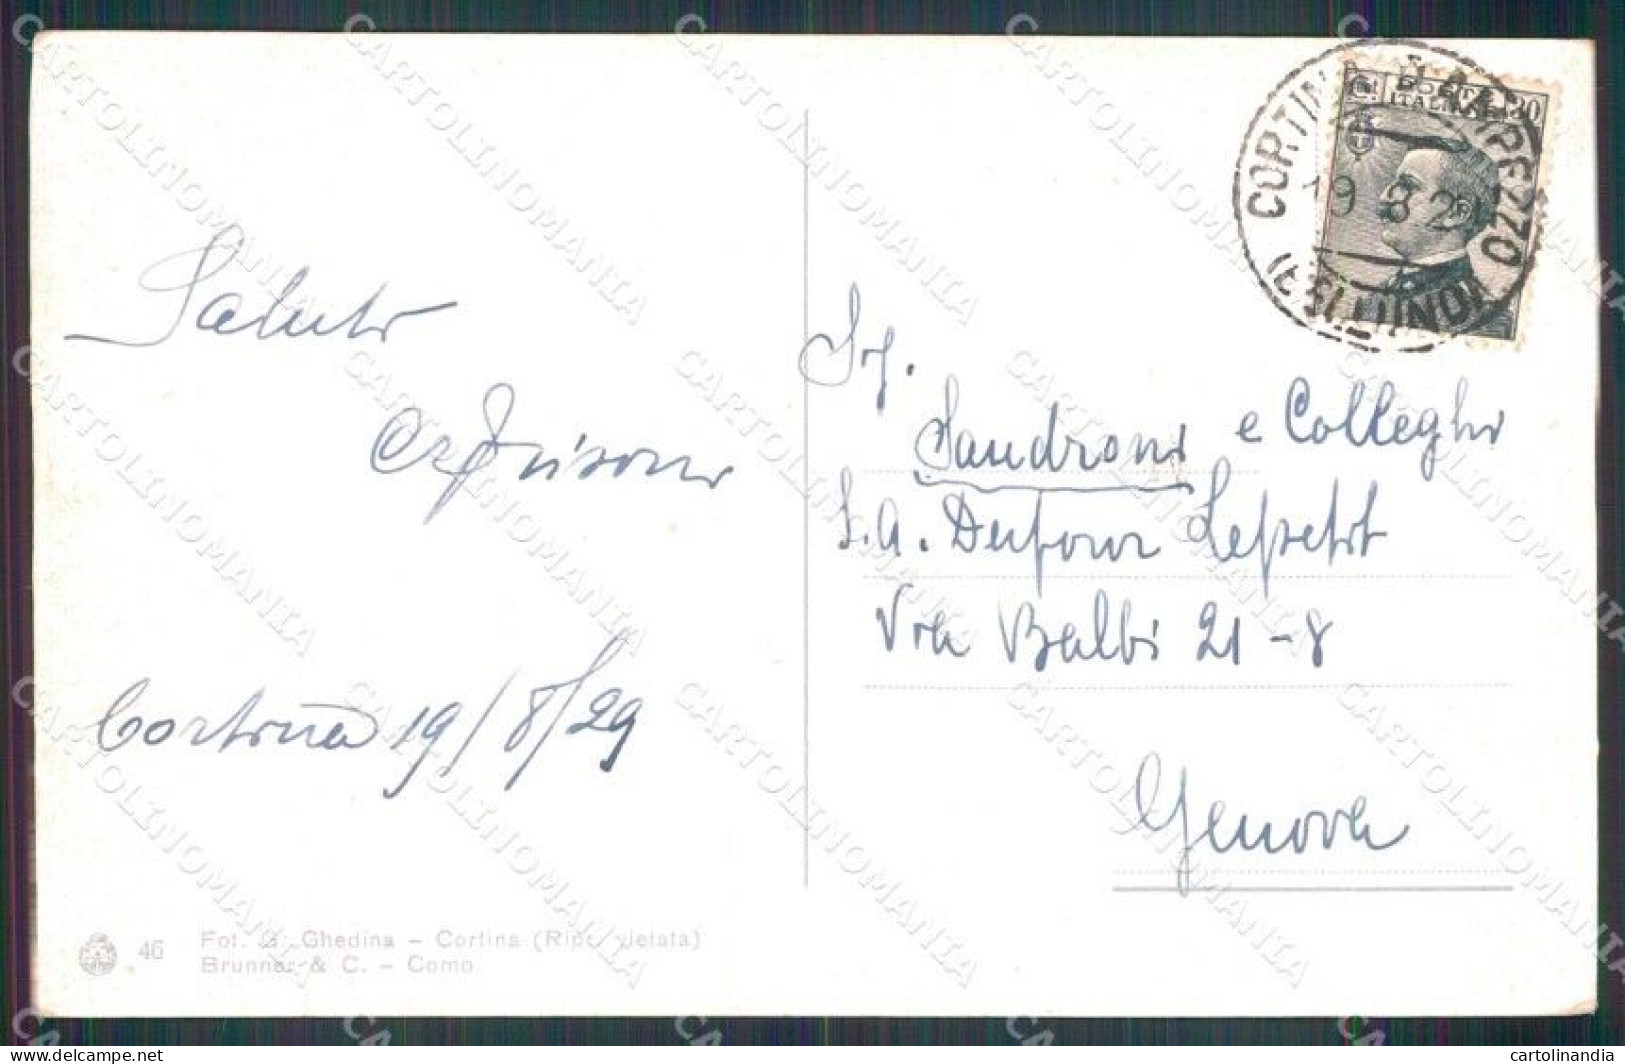 Saluti
Cortina 19/8/29
46
Fot. G. Ghedina – Cortina (Ripr. vietata)
Brunner & C. – Como
CORTINA D'AMPEZZO
(BELLUNO)
19.8.29
Ct. POSTE 30
ITALIANE
Sig.
Sandroni e Colleghi
S.A. Dufour Lepetit
Via Balbi 21-8
Genova
CARTOLINOMANIA
delcampe.net
cartolinandia